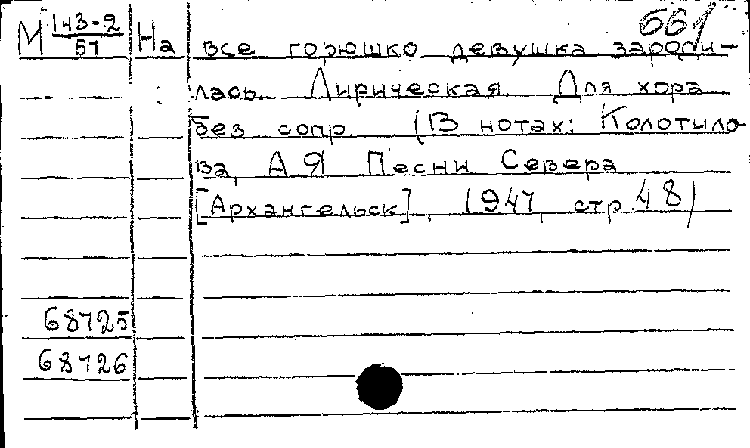 661
М 143-2/51 На все горюшко девушка зароди-
лась. Лирическая. Для хора
без сопр. (В нотах: Колотило
ва, А Я Песни Севера
[Архангельск], 1947, стр. 48)
68725
68726